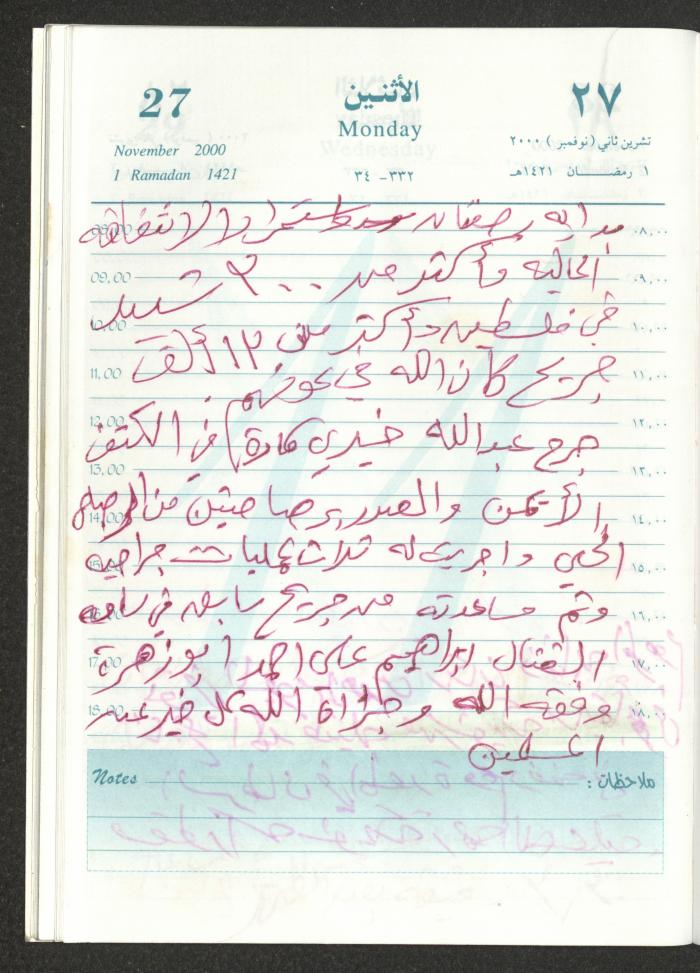 27
November 2000
1 Ramadan 1421
الأثنين
Monday
٣٣٢- ٣٤
٢٧
تشرين ثاني (نوفمبر) ٢٠٠٠
١ رمضان ١٤٢١هـ
بدايه رمضان واستمرار الانتفاضه
الحاليه وأكثر من ٣٠٠ شهيد
في فلسطين وأكثر من ١٢ ألف
جريح كان الله في عونهم
جرح عبدالله خيري في الكتف
الأيمن والصدر برصاصتين من الرصاص
الحي واجريت له ثلاث عمليات جراحيه
وتم مساعدته من جريح سابق في ساحه
القتال ابراهيم علي احمد ابوزهرة
وفقه الله وجزاة الله كل خير عن
المسلمين
08,00
09,00
10,00
11,00
12,00
13,00
14,00
15,00
16,00
17,00
18,00
٠٨,٠٠
٠٩,٠٠
١٠,٠٠
١١,٠٠
١٢,٠٠
١٣,٠٠
١٤,٠٠
١٥,٠٠
١٦,٠٠
١٧,٠٠
١٨,٠٠
Notes
ملاحظات :